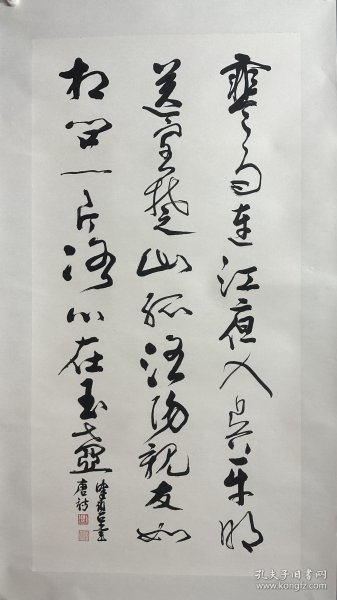 寒雨連江夜入吳平明
送客楚山孤洛陽親友如
相問一片冰心在玉壺
唐詩
孔夫子旧书网
www.kongfz.com